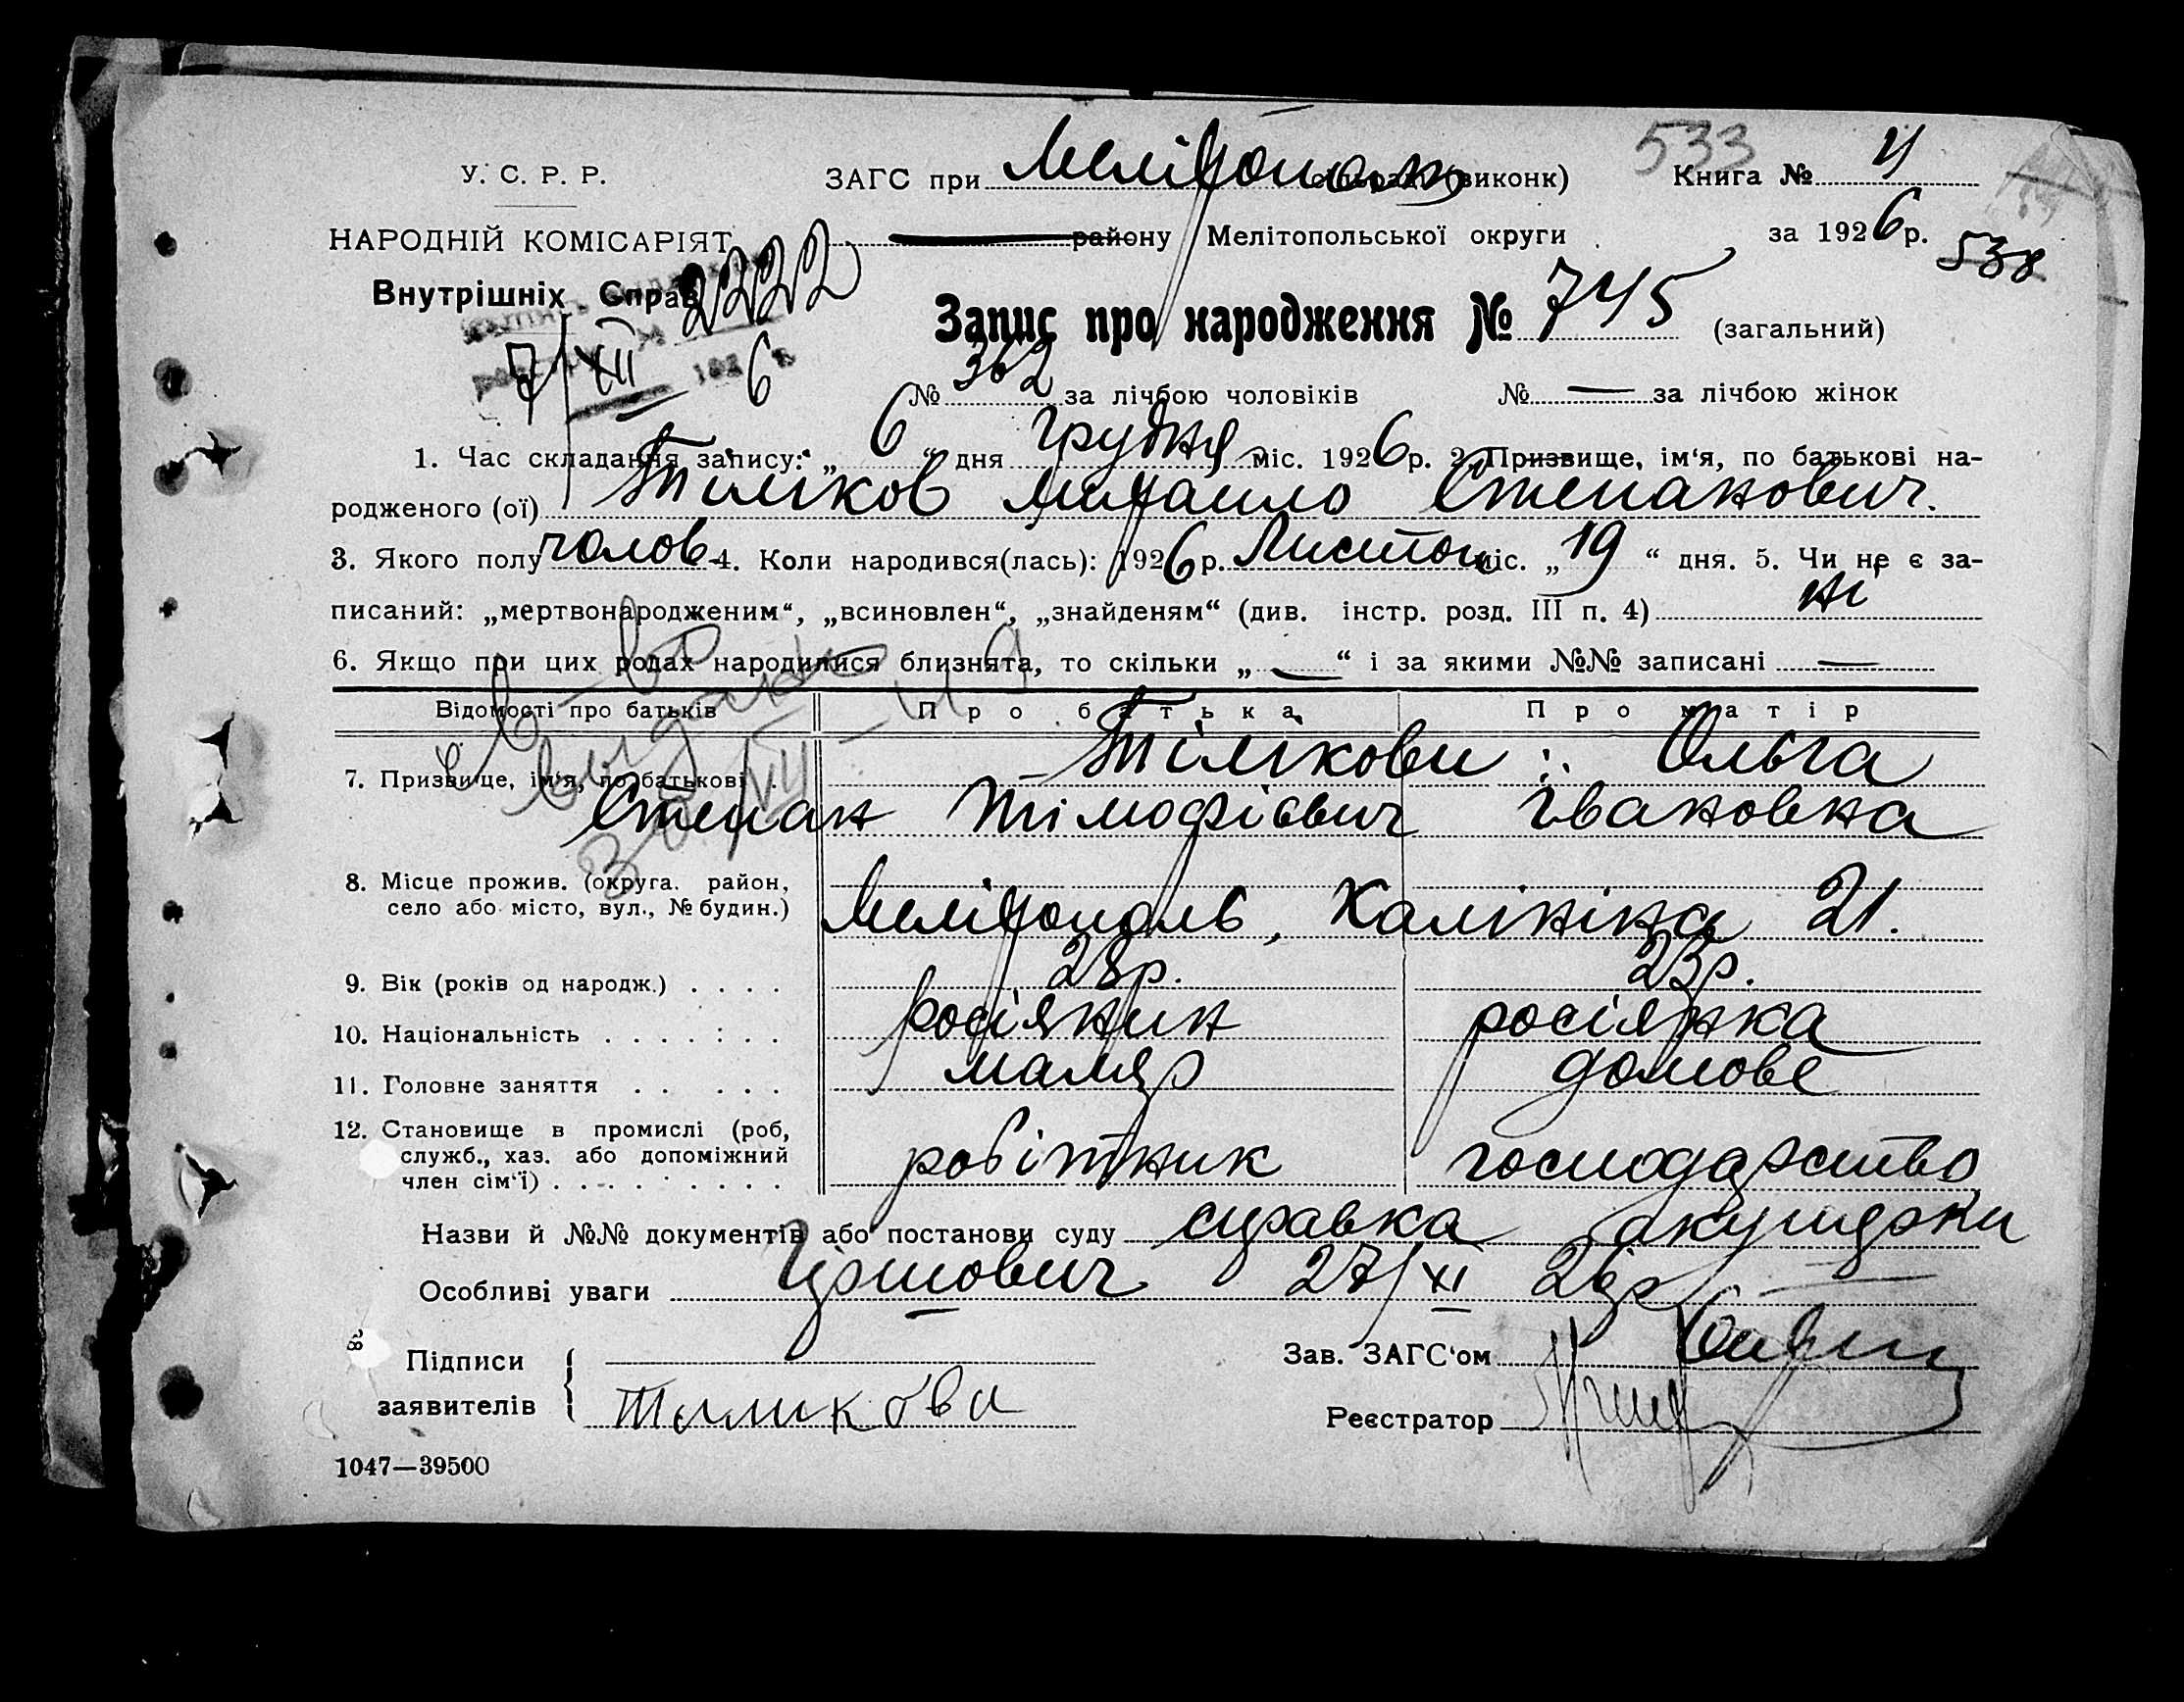 У. С. Р. Р.
ЗАГС при Мелітопол (виконк)
533 Книга № 4
НАРОДНІЙ КОМІСАРІЯТ
району Мелітопольської округи за 1926 р.
538
Внутрішніх Справ
2222
Запис про народження № 745 (загальний)
7/XII 1926 р
№ 362 за лічбою чоловіків № — за лічбою жінок
1. Час складання запису: „ 6 “ дня Грудня міс. 1926 р. 2. Призвище, ім‘я, по батькові на-
родженого (ої) Тиліков Михаило Степанович.
3. Якого полу чолов 4. Коли народився(лась): 1926 р. Листоп міс. „ 19 “ дня. 5. Чи не є за-
писаний: „мертвонародженим“, „всиновлен“, „знайденям“ (див. інстр. розд. III п. 4) ні
6. Якщо при цих родах народилися близнята, то скільки „ — “ і за якими №№ записані —
Відомості про батьків Про батька Про матір
Тілікови : Ольга
7. Призвище, ім‘я, по батькові
Степан Тімофієвич Івановна
8. Місце прожив. (округа. район,
село або місто, вул., № будин.) Мелітополь, Калініна 21.
9. Вік (років од народж.) . . . . 28 р. 23 р.
10. Національність . . . . . . . росіянин росіянка
11. Головне заняття . . . . . маляр домове
12. Становище в промислі (роб,
служб., хаз. або допоміжний робітник господарство
член сім‘ї) . . . . . . . . .
Назви й №№ документів або постанови суду справка акушерки
Особливі уваги 27/XI 26 р.
Підписи
Зав. ЗАГС‘ом
заявителів Тиликова
Реєстратор
1047—39500